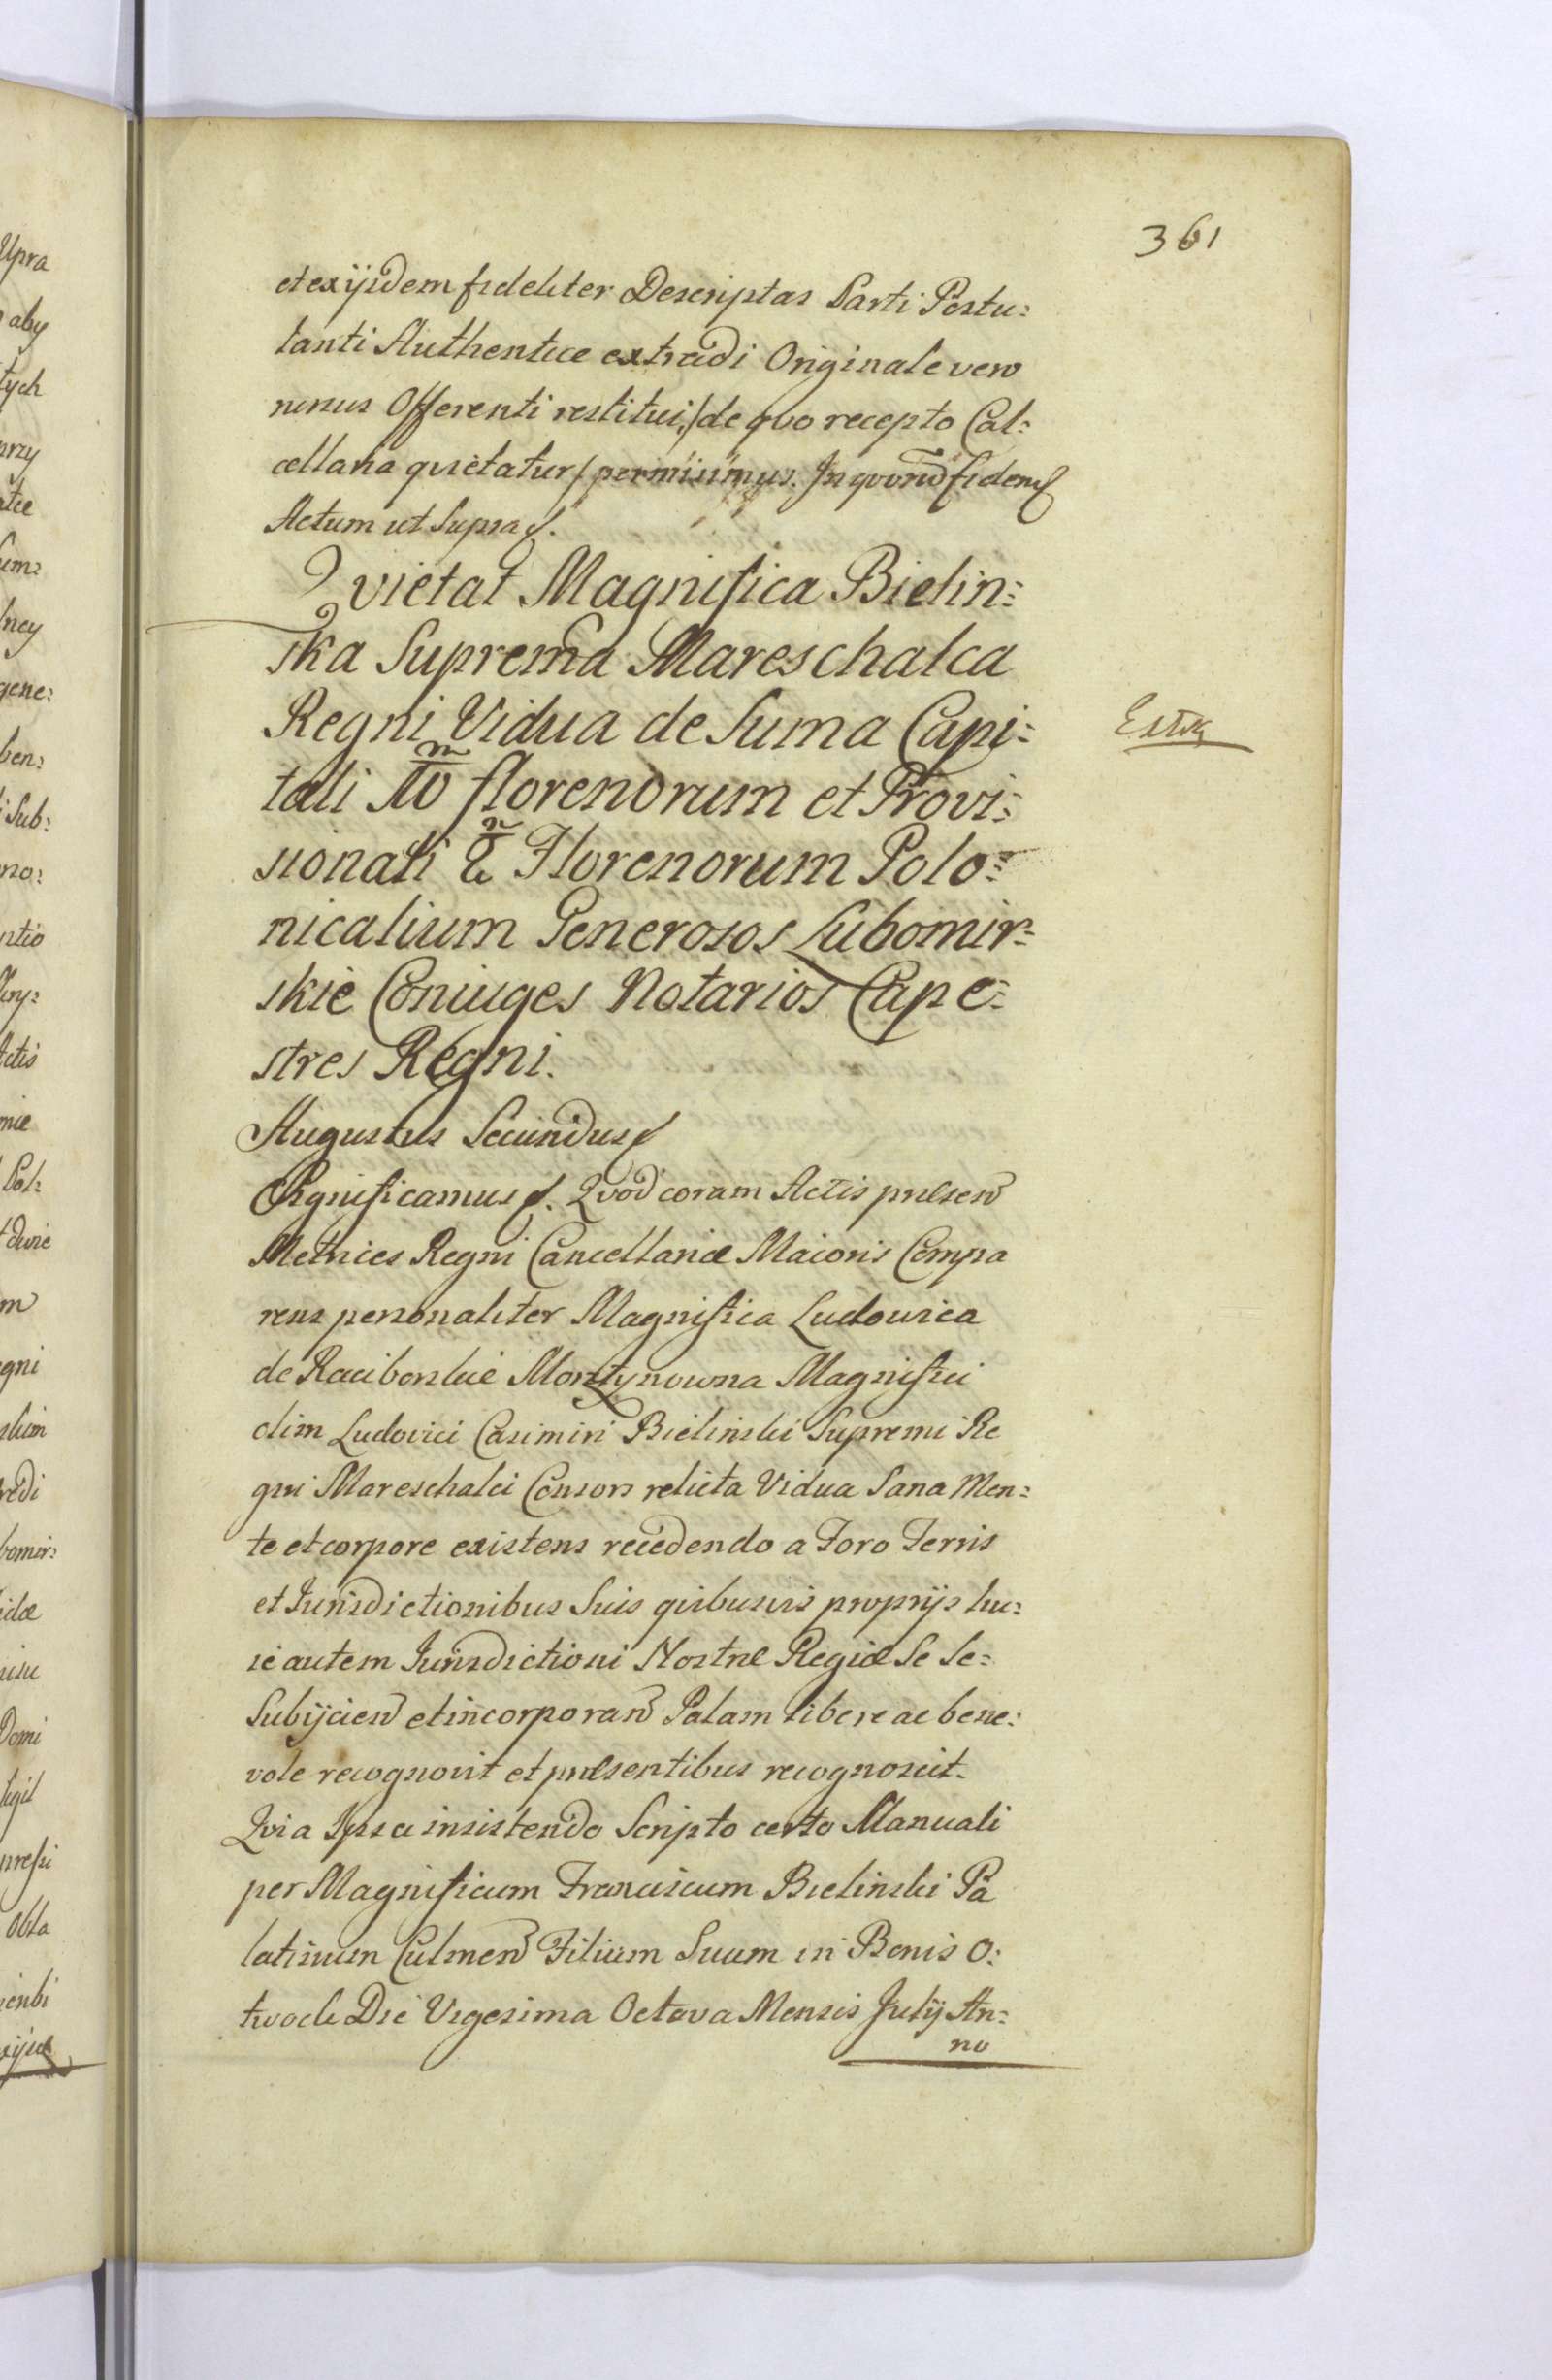 361
et ex ijsdem fideliter Descriptas Parti Postu:
lanti Authentice extradi Originale vero
rursus Offerenti restitui, /de quo recepto Cal:
cellaria quietatur/ permisimus. In quorũ fidem
Actum ut Supra.
Quietat Magnifica Bielin:
ska Suprema Mareschalca
Regni Vidua de Suma Capi:
tali florenorum et Provi:
sionali Florenorum Polo:
nicalium Generosos Lubomir:
skie Coniuges Notarios Cape:
stres Regni.
Augustus Secundus
Significamus. Quod coram Actis præsen
Metrices Regni Cancellariæ Maioris Compa
rens personaliter Magnifica Ludowica
de Raciborskie Morsztynowna Magnifici
olim Ludovici Casimiri Bielinski Supremi Re
gni Mareschalci Consors relicta Vidua Sana Men:
te et corpore existens recedendo a Foro Terris
et Jurisdictionibus Suis quibusvis proprijs hu:
ic autem Jurisdictioni Nostræ Regiæ Se Se:
Subijcien et incorporan Palam libere ac bene:
vole recognovit et præsentibus recognoscit.
Quia Ipsa insistendo Scripto certo Manuali
per Magnificum Franciscum Bielinski Pa
latinum Culmen Filium Suum in Bonis O:
twock Die Vigesima Octava Mensis Julij An:
no